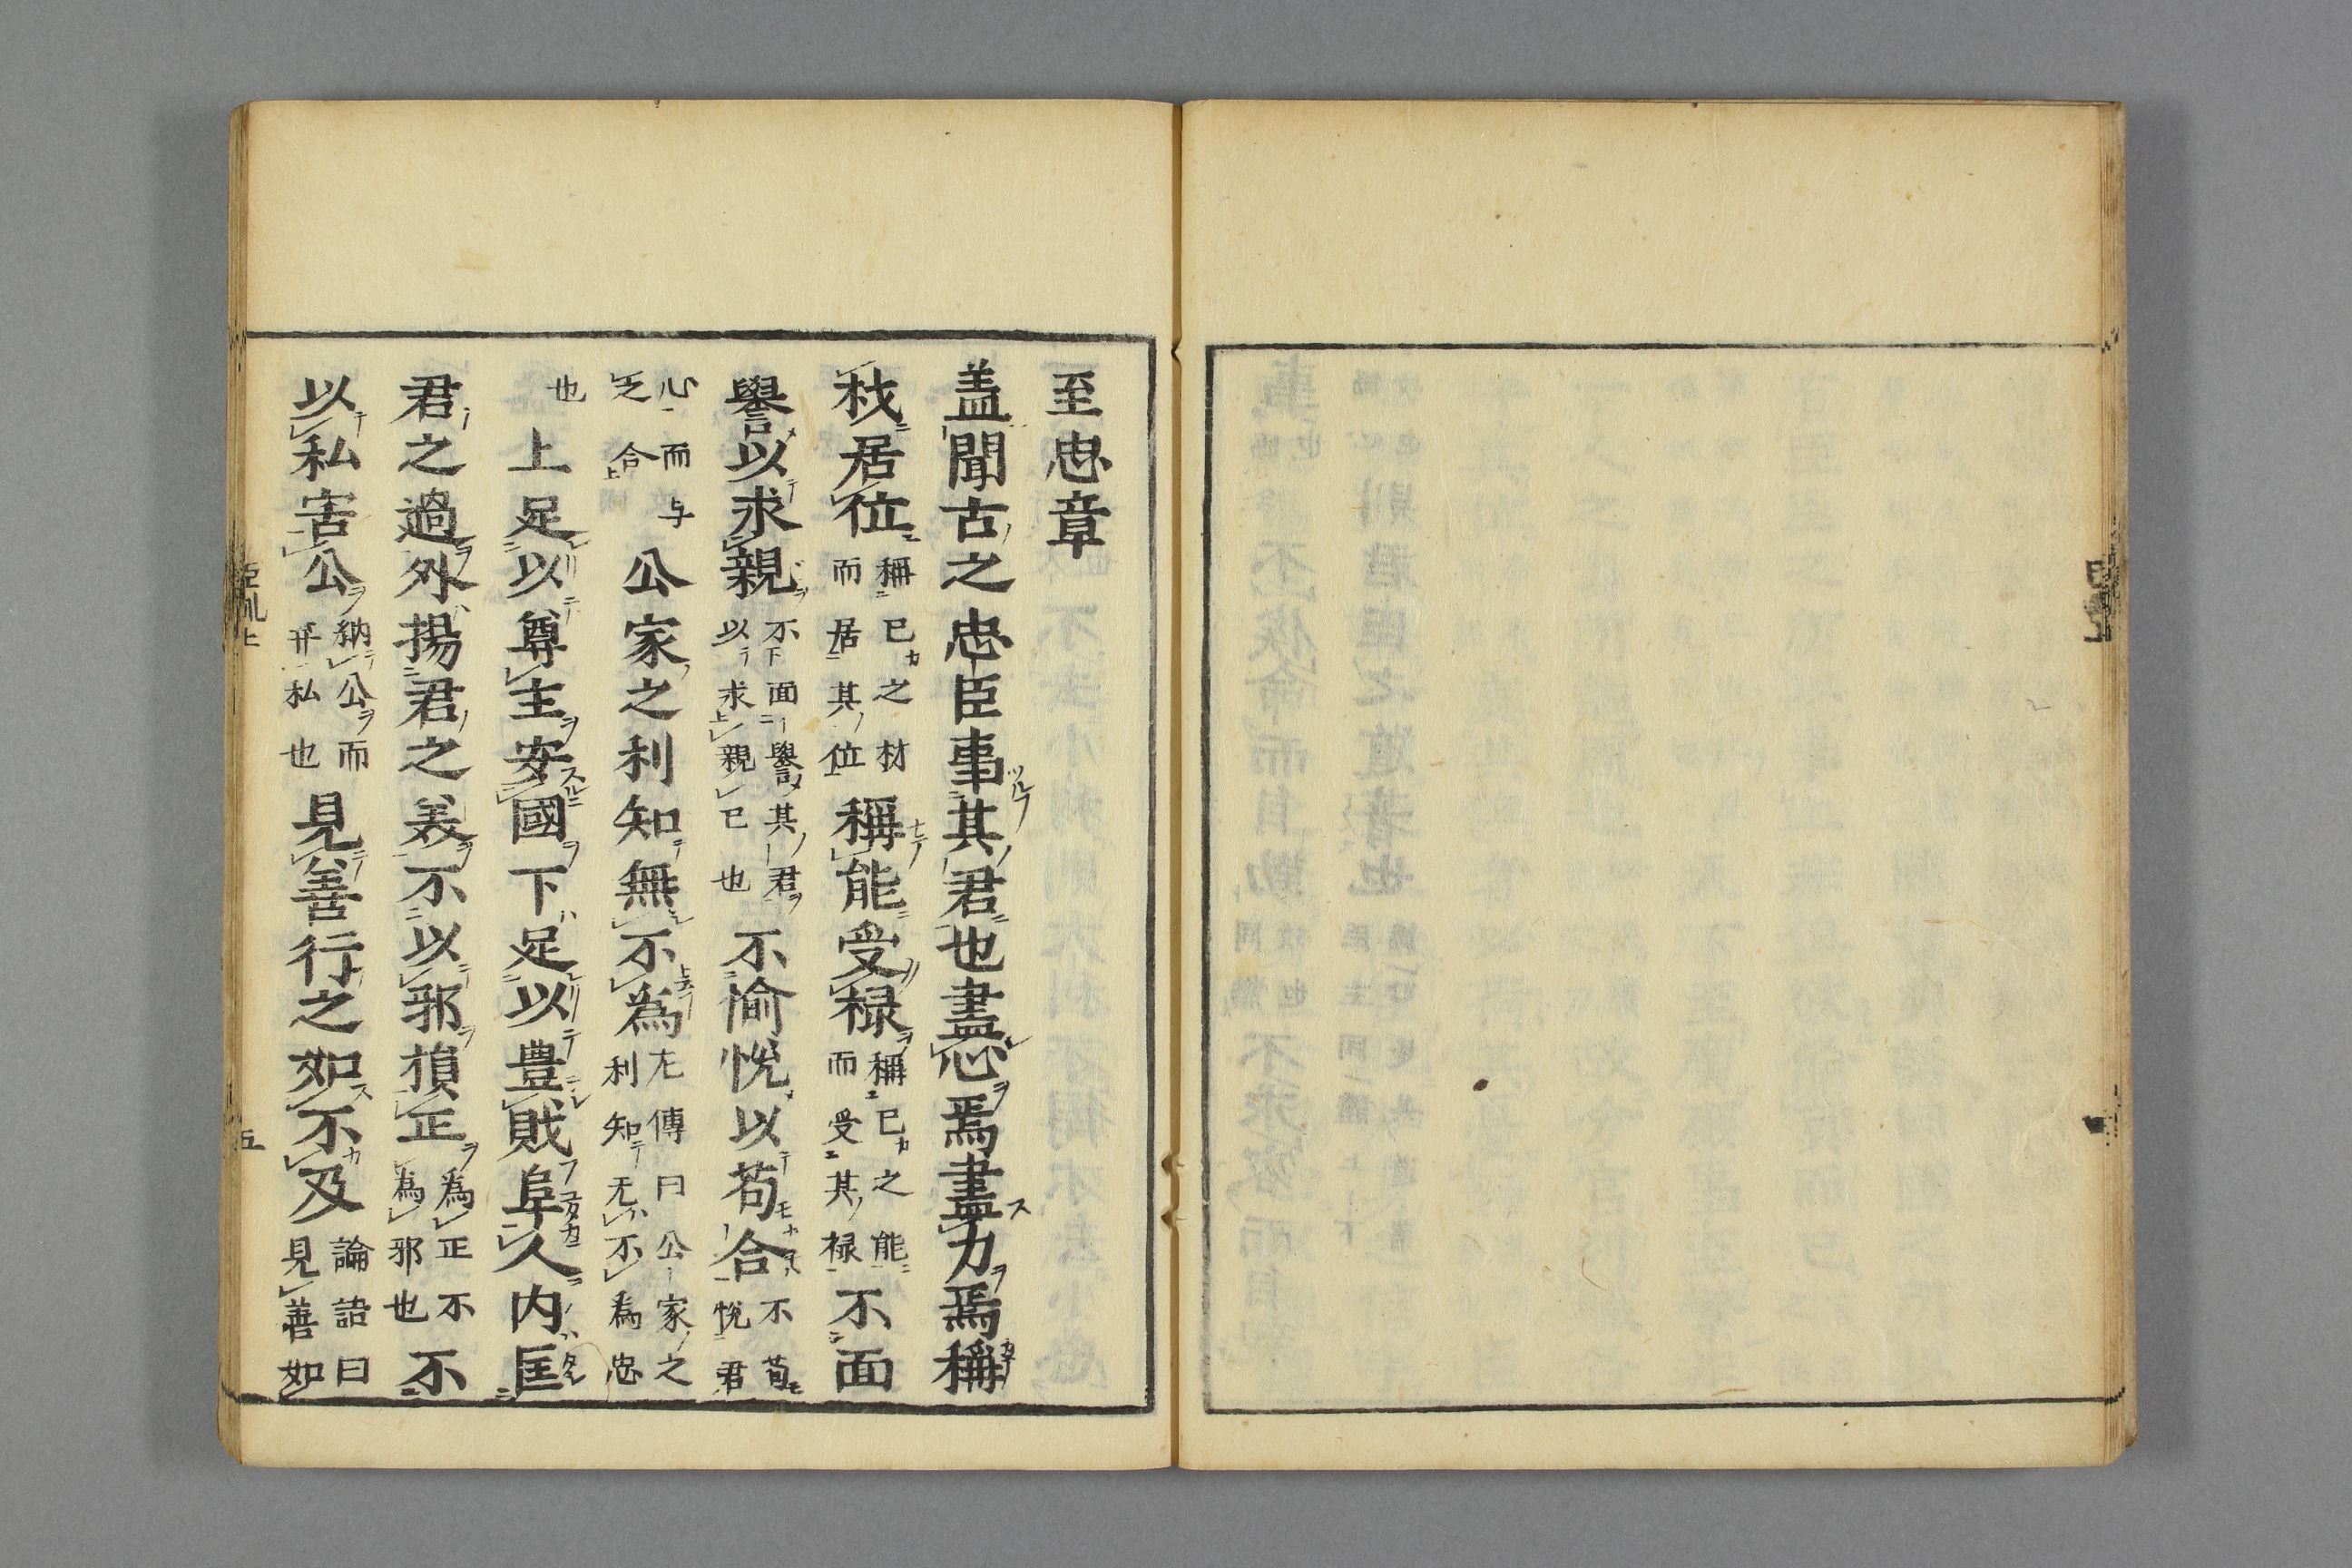 至忠章
盖聞古之忠臣事其君也盡心焉盡力焉稱
材居位稱已之材而居其位稱能受禄稱已之能而受其禄不面
譽以求親不面譽其君以求親已也不愉悦以苟合不苟悦君
心而与之合也公家之利知無不為左傳曰公家之利知无不為忠
也上足以尊主安國下足以豊財阜人内匡
君之過外揚君之美不以邪損正為正不為邪也不
以私害公納公而弃私也見善行之如不及論語曰見善如
臣軌上
五